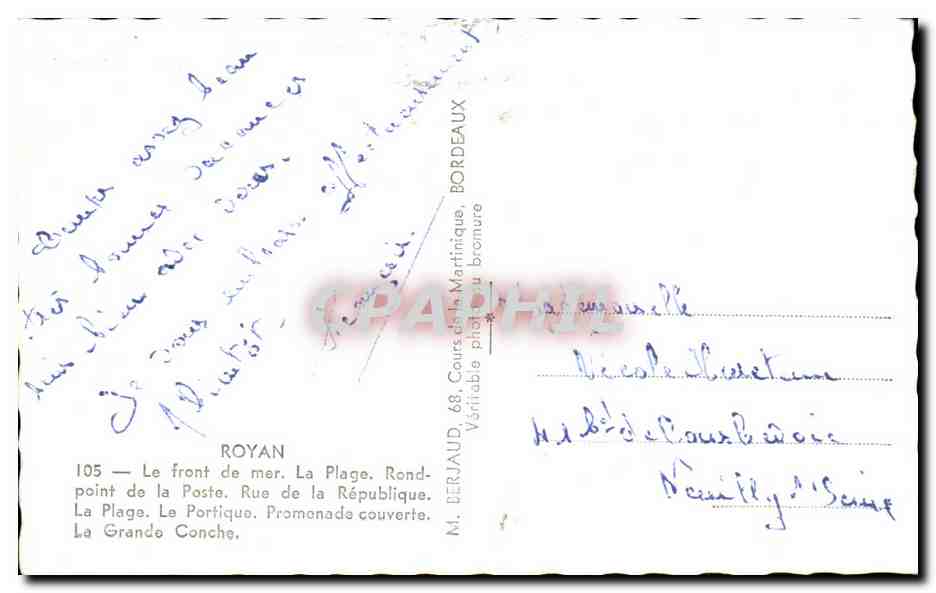 Temps assez beau
très bonnes vacances
suis bien avec vous.
Je vous embrasse affectueusement
Bientôt.
ROYAN
105 — Le front de mer. La Plage. Rond-
point de la Poste. Rue de la République.
La Plage. Le Portique. Promenade couverte.
La Grande Conche.
M. BERJAUD, 68, Cours de la Martinique, BORDEAUX
Véritable photo au bromure
CPARPHIL
Mademoiselle
Nicole
41 Bd de Courbevoie
Neuilly s/ Seine